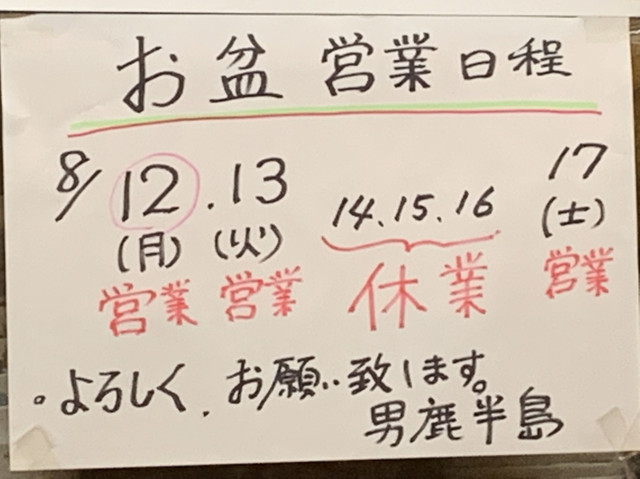 お盆 営業日程
8/12.13 14.15.16 17
(月)(火) (土)
営業 営業 休業 営業
。よろしく.お願い致します。
男鹿半島